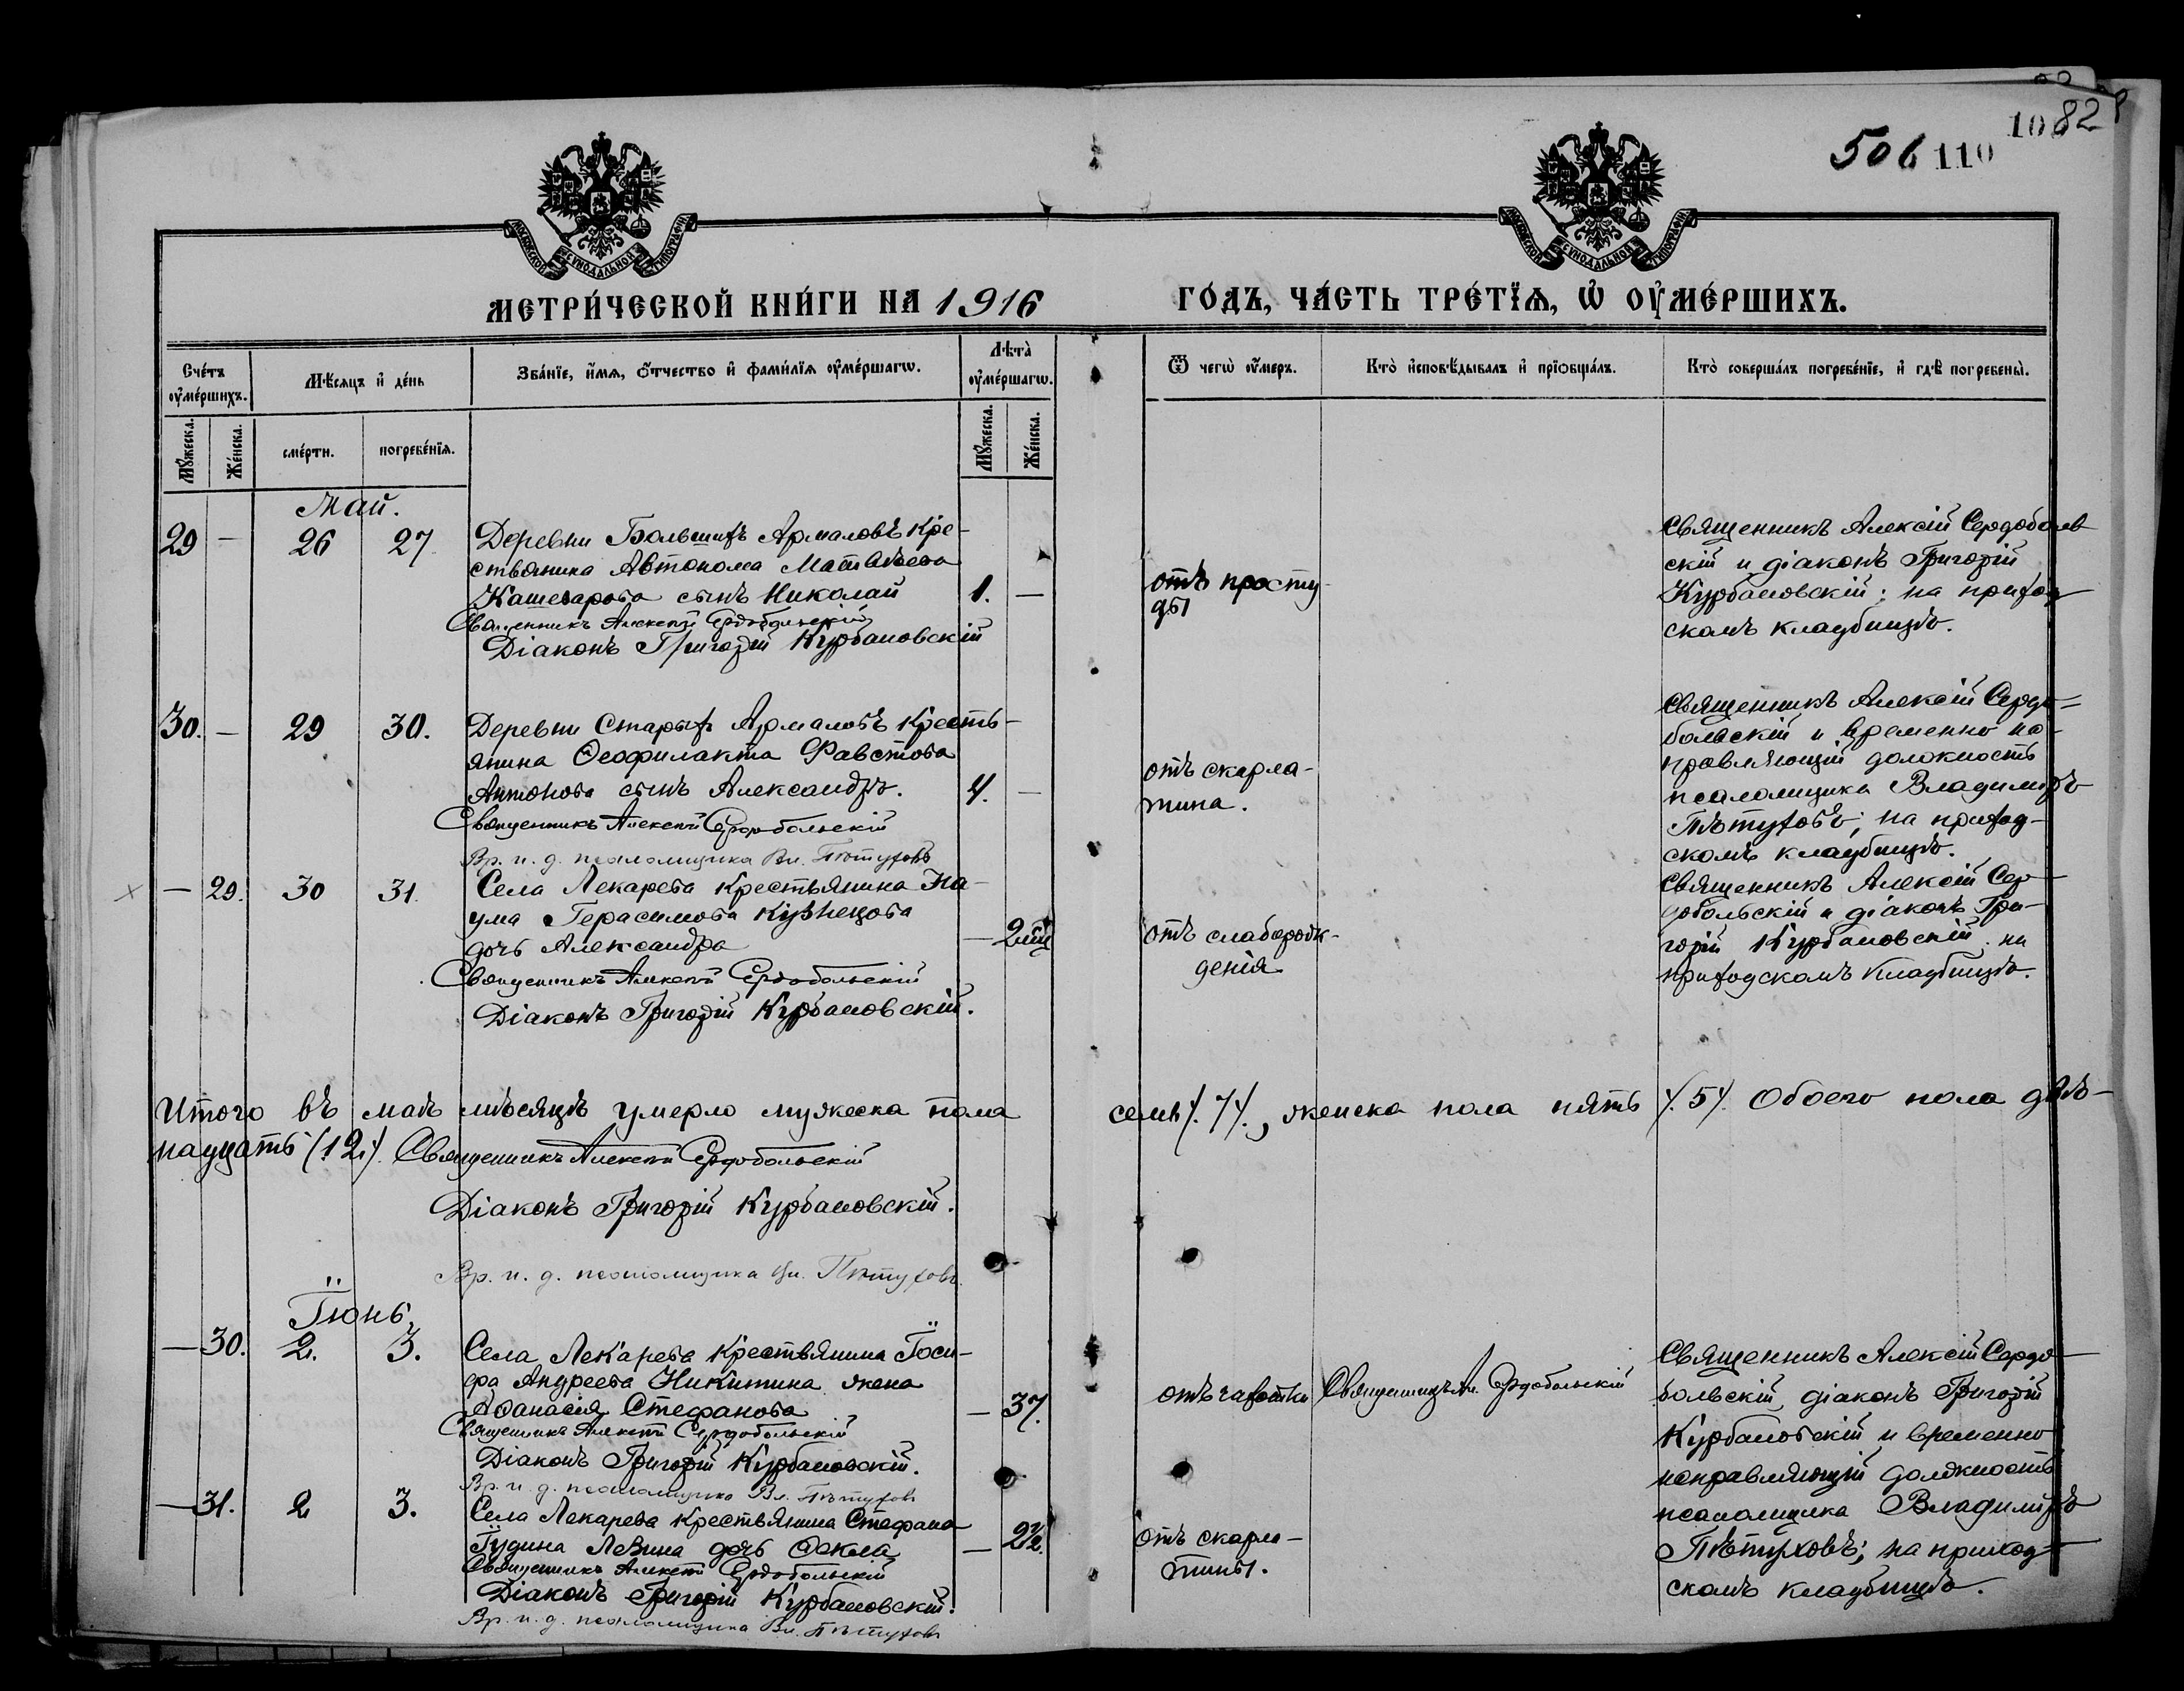 10 82
506 110
МОСКОВСКОЙ СѴНОДАЛЬНОЙ ТИПОГРАФІИ
МОСКОВСКОЙ СѴНОДАЛЬНОЙ ТИПОГРАФІИ
МЕТРИ́ЧЕСКОЙ КНИ́ГИ НА 1916 ГО́ДЪ, ЧА́СТЬ ТРЕ́ТІѦ, Ѡ ОУ҆МЕ́РШИХЪ.
Сче́тъ оу҆ме́ршихъ.
Мѣ́сяцъ и҆ де́нь
Зва́нїе, и҆́мѧ, ѻ҆́тчество и҆ фами́лїѧ оу҆ме́ршагѡ.
Лѣ́та оу҆ме́ршагѡ.
Ѿ чегѡ̀ оу҆́меръ.
Кто̀ и҆сповѣ́дывалъ и҆ прїѡбща́лъ.
Кто̀ соверша́лъ погребе́нїе, и҆ гдѣ̀ погребены̀.
Мꙋ́жеска. Же́нска. сме́рти. погребе́нїѧ. Мꙋ́жеска. Же́нска.
Май.
29 — 26 27 Деревни Большихъ Армаловъ кре-
ствянина Автонома Матвѣева
Кашеварова сынъ Николай 1. —
Священникъ Алексій Сердобольскій
Діаконъ Григорій Курбановскій
отъ просту-
ды
Священникъ Алексій Сердоболь-
скій и діаконъ Григорій
Курбановскій; на приход-
скомъ кладбищѣ.
30. — 29 30. Деревни Старыхъ Армаловъ кресть-
янина Ѳеофилакта Фавстова
Антонова сынъ Александръ. 4. —
Священникъ Алексій Сердобольскій
Вр. и. д. псаломщика Вл. Пѣтуховъ
отъ скарла-
тина.
Священникъ Алексій Сердо-
больскій и временно ис-
правляющій должность
псаломщика Владимиръ
Пѣтуховъ; на приход-
скомъ кладбищѣ.
— 29. 30 31. Села Лекарева крестьянина На-
ума Герасимова Кузнецова
дочь Александра
Священникъ Алексій Сердобольскій
Діаконъ Григорій Курбановскій.
отъ слаборож-
денія
Священникъ Алексій Сер-
добольскій и діаконъ Гри-
горій Курбановскій на
приходскомъ кладбищѣ.
Итого въ маѣ мѣсяцѣ умерло мужеска пола семь /.7/., женска пола пять /.5/. Обоего пола двѣ-
надцать /.12./. Священникъ Алексій Сердобольскій
Діаконъ Григорій Курбановскій.
Вр. и. д. псаломщика Вл. Пѣтуховъ.
Іюнь,
— 30. 2. 3. Села Лекарева крестьянина Іоси-
фа Андреева Никитина жена
Аѳанасія Стефанова — 37.
Священникъ Алексій Сердобольскій
Діаконъ Григорій Курбановскій.
Вр. и. д. псаломщика Вл. Пѣтуховъ
отъ чахотки Священникъ Ал. Сердобольскій
Священникъ Алексій Сердо-
больскій, діаконъ Григорій
Курбановскій и временно
исправляющій должность
псаломщика Владимиръ
Пѣтуховъ; на приход-
скомъ кладбищѣ.
— 31. 2 3. Села Лекарева крестьянина Стефана
Іудина Левина дочь Ѳекла — 2½.
Священникъ Алексій Сердобольскій
Діаконъ Григорій Курбановскій.
Вр. и. д. псаломщика Вл. Пѣтуховъ
отъ скарла-
тины.